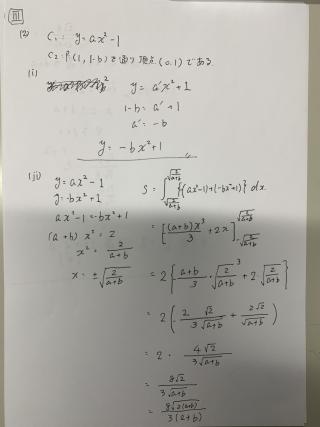 III
(2) C₁: y=ax²-1
C₂: P(1,1-b)を通り頂点(0.1)である
(i)
y=a'x²+1
1-b=a'+1
a'=-b
y=-bx²+1
(ii)
y=ax²-1
y=-bx²+1
ax²-1=-bx²+1
(a+b)x²=2
x²=2/(a+b)
x=±√(2/(a+b))
S=∫_{√(2/(a+b))}^{√(2/(a+b))} {(ax²-1)+(-bx²+1)} dx
=[(a+b)x³/3+2x]_{-√(2/(a+b))}^{√(2/(a+b))}
=2{(a+b)/3・√(2/(a+b))³+2・√(2/(a+b))}
=2(2√2/(3√(a+b))+2√2/√(a+b))
=2・4√2/(3√(a+b))
=8√2/(3√(a+b))
=8√2(a+b)/(3(a+b))